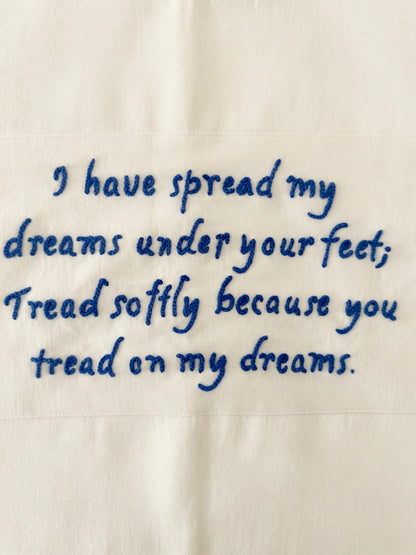 I have spread my
dreams under your feet;
Tread softly because you
tread on my dreams.